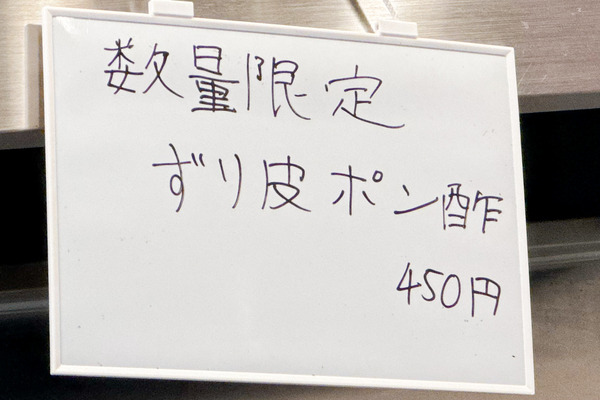 数量限定
ずり皮ポン酢
450円